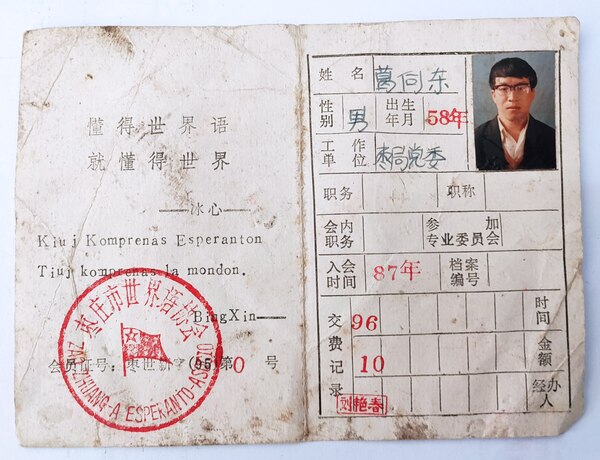 懂得世界语
就懂得世界
——冰心——
Kiuj Komprenas Esperanton
Tiuj komprenas la mondon.
BingXin——
会员证号：枣世新字(95)第0 号
枣庄市世界语协会
ZAOZHUANG-A ESPERANTO-ASOCIO
姓 名 葛同东
性别 男 出生年月 58年
工作单位 枣局党委
职务 职称
会内职务 参加专业委员会
入会时间 87年 档案编号
交费记录 96 时间
10 金额
刘艳春 经办人